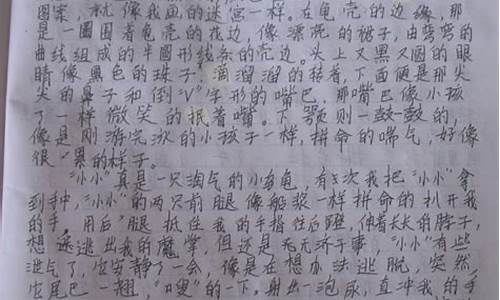 图案,就像我画的迷宫一样。在龟壳的边缘,那
是一圈围着龟壳的花边,像漂亮的裙子,由弯弯的
曲线组成的半圆形线条的壳边。头上又黑又圆的眼
睛像黑色的珠子,滴溜溜的转着,下面便是那尖
尖的鼻子和倒“V”字形的嘴巴,那嘴巴像小孩
了一样微笑的抿着嘴。下颚则一鼓一鼓的,
像是刚游完泳的小孩子一样,拼命的喘气,好像
很累的样子。
“小小”真是一只淘气的小乌龟,有一次我把“小小”拿
到手中,“小小”的两只前腿像船桨一样拼命的扒开我
的手,用后腿抵住我的手指往后蹬,伸着长长的脖子,
想逃出我的魔掌,但还是无无济于事,“小小”有些
泄气了,它安静了一会,像是在想办法逃脱,突然
它尾巴一翘,“嗖”的一下,射出一泡尿,直冲我的手